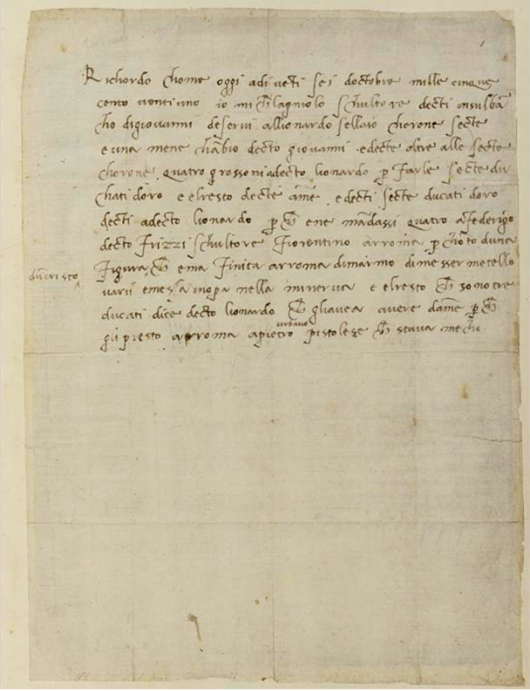 Richordo chome oggi adi venti sei doctobre mille cinque
cento venti uno io michelagniolo schultore decti in sulbā
cho di giovanni deservi allionardo sellaio chorone secte
e una mene chābio decto giovanni e decte altre alle secte
chorone quatro grossoni a decto lionardo p farle secte du
chati doro e elresto decte a me e decti secte ducati doro
decti a decto lionardo p che ne mādassi quatro a Federigo
decto Frizzi schultore Fiorentino arroma p chōto duna
figura che ma finita arroma di marmo di messer metello
dun cristo
varii e messa inopa nella minerva e elresto che so no tre
ducati dice decto lionardo che gli avea avere da me p che
gli presto arroma a pietro urbano pistolese che stava mecho